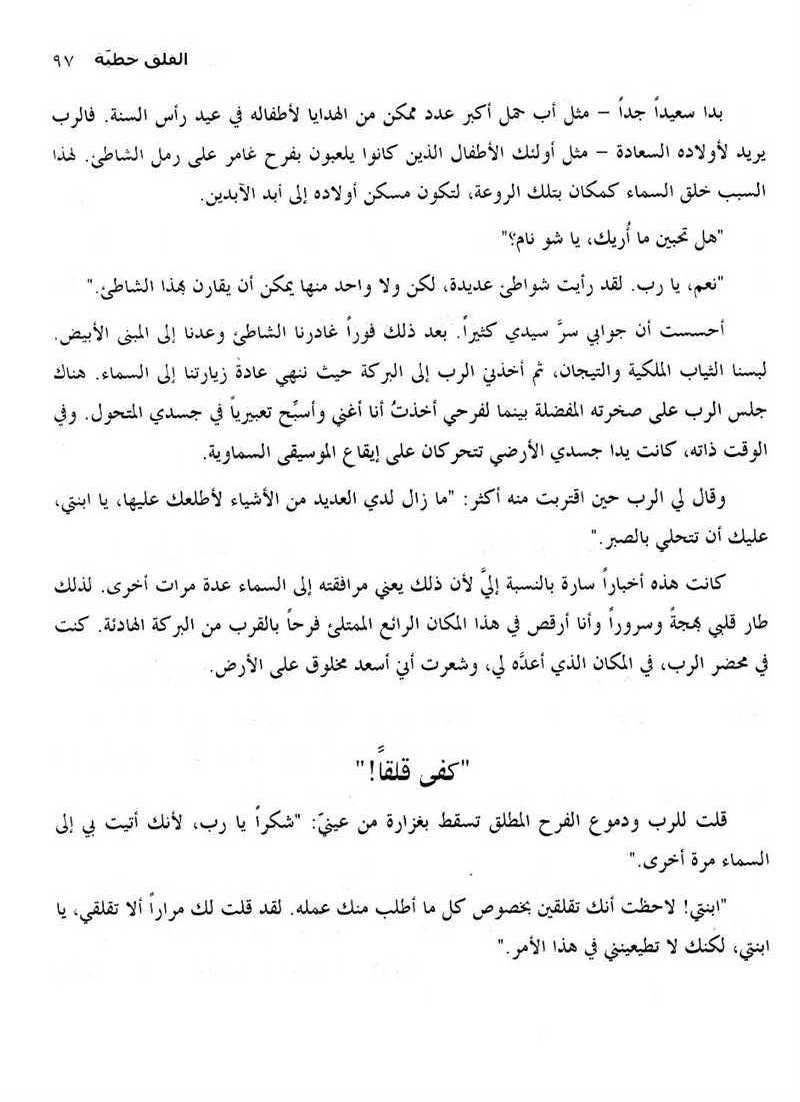 القلق خطيّة ٩٧
بدا سعيداً جداً – مثل أب حمل أكبر عدد ممكن من الهدايا لأطفاله في عيد رأس السنة. فالرب
يريد لأولاده السعادة – مثل أولئك الأطفال الذين كانوا يلعبون بفرح غامر على رمل الشاطئ. لهذا
السبب خلق السماء كمكان بتلك الروعة، لتكون مسكن أولاده إلى أبد الآبدين.
"هل تحبين ما أُريك، يا شو نام؟"
"نعم، يا رب. لقد رأيت شواطئ عديدة، لكن ولا واحد منها يمكن أن يقارن بهذا الشاطئ."
أحسست أن جوابي سرَّ سيدي كثيراً. بعد ذلك فوراً غادرنا الشاطئ وعدنا إلى المبنى الأبيض.
لبسنا الثياب الملكية والتيجان، ثم أخذني الرب إلى البركة حيث ننهي عادةً زيارتنا إلى السماء. هناك
جلس الرب على صخرته المفضلة بينما لفرحي أخذتُ أنا أغني وأسبِّح تعبيرياً في جسدي المتحول. وفي
الوقت ذاته، كانت يدا جسدي الأرضي تتحركان على إيقاع الموسيقى السماوية.
وقال لي الرب حين اقتربت منه أكثر: "ما زال لدي العديد من الأشياء لأطلعك عليها، يا ابنتي،
عليك أن تتحلي بالصبر."
كانت هذه أخباراً سارة بالنسبة إليَّ لأن ذلك يعني مرافقته إلى السماء عدة مرات أخرى. لذلك
طار قلبي بهجةً وسروراً وأنا أرقص في هذا المكان الرائع الممتلئ فرحاً بالقرب من البركة الهادئة. كنت
في محضر الرب، في المكان الذي أعدَّه لي، وشعرت أني أسعد مخلوق على الأرض.
"كفى قلقاً!"
قلت للرب ودموع الفرح المطلق تسقط بغزارة من عينيّ: "شكراً يا رب، لأنك أتيت بي إلى
السماء مرة أخرى."
"ابنتي! لاحظت أنك تقلقين بخصوص كل ما أطلب منك عمله. لقد قلت لك مراراً ألا تقلقي، يا
ابنتي، لكنك لا تطيعينني في هذا الأمر."